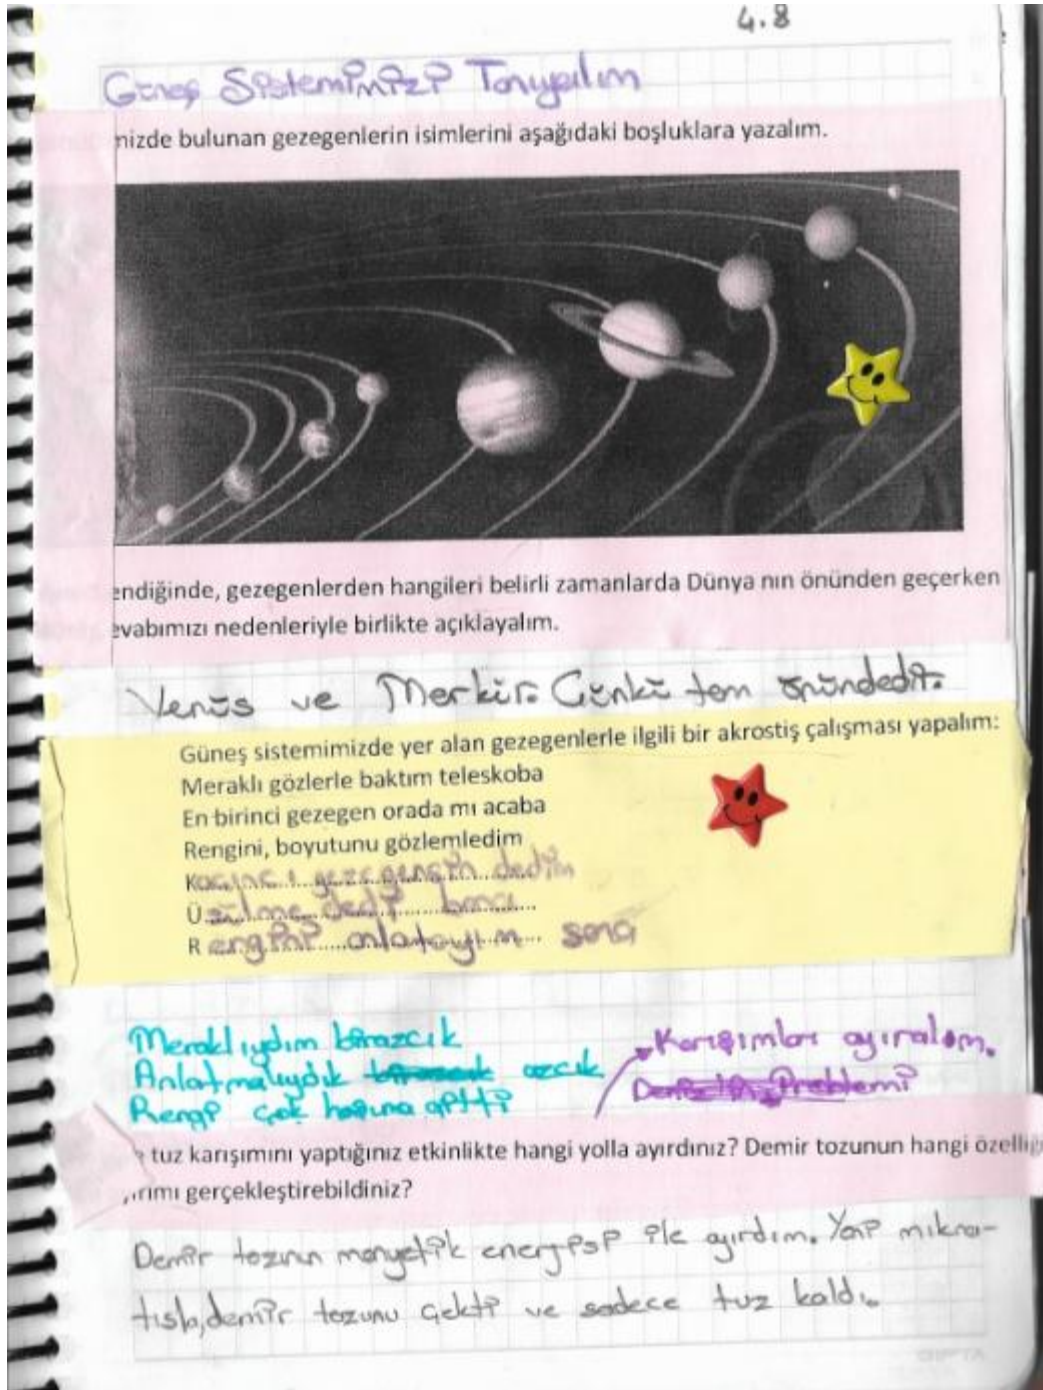 4.8
Güneş Sistemimizi Tanıyalım
mizde bulunan gezegenlerin isimlerini aşağıdaki boşluklara yazalım.
endiğinde, gezegenlerden hangileri belirli zamanlarda Dünya nın önünden geçerken
evabımızı nedenleriyle birlikte açıklayalım.
Venüs ve Merkür. Çünkü tam önündedir.
Güneş sistemimizde yer alan gezegenlerle ilgili bir akrostiş çalışması yapalım:
Meraklı gözlerle baktım teleskoba
En birinci gezegen orada mı acaba
Rengini, boyutunu gözlemledim
Kaçıncı gezegensin dedim
Üzülme dedi bana
Rengini anlatayım sana
Meraklıydım birazcık
Anlatmalıydık azcık
Rengi çok hoşuma gitti
Karışımları ayıralım.
Problemi
tuz karışımını yaptığınız etkinlikte hangi yolla ayırdınız? Demir tozunun hangi özelliği
ırımı gerçekleştirebildiniz?
Demir tozunun manyetik enerjisi ile ayırdım. Yani mikna-
tısla, demir tozunu çekti ve sadece tuz kaldı.